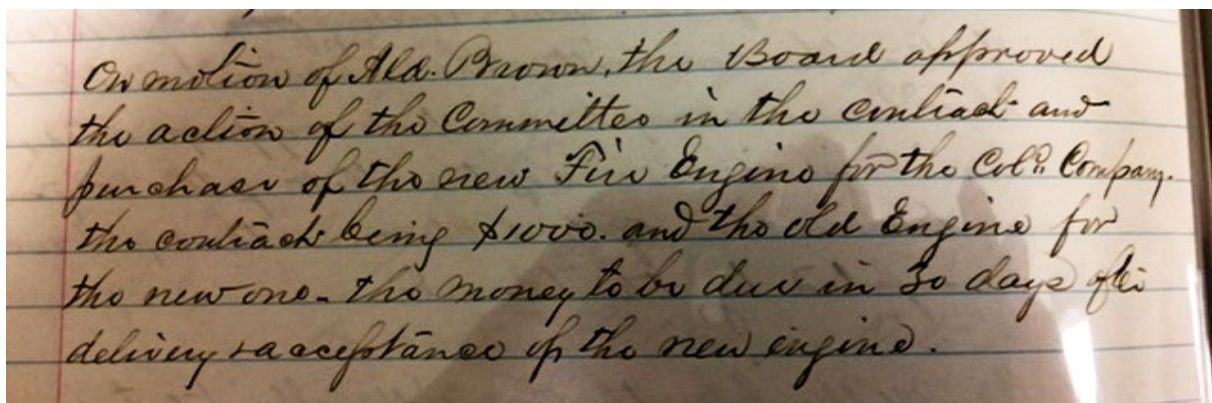 On motion of Ald. Brown, the Board approved
the action of the Committee in the contract and
purchase of the new Fire Engine for the Cold. Company.
the contract being $1000. and the old Engine for
the new one - the money to be due in 30 days after
delivery & acceptance of the new engine.